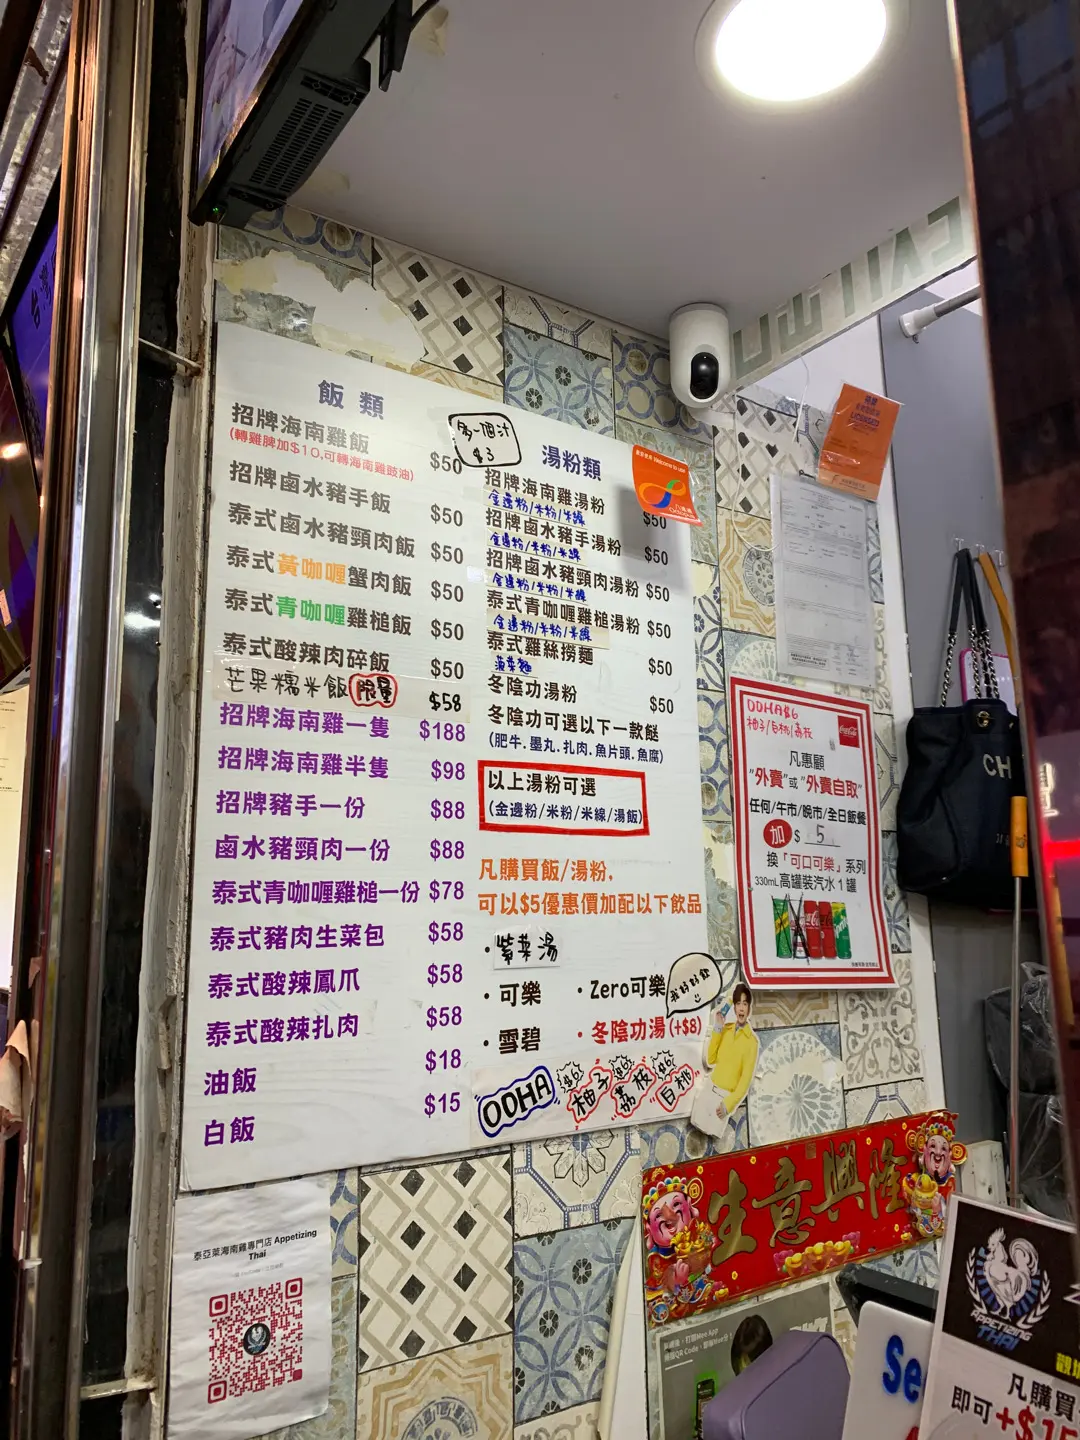 飯類
招牌海南雞飯 $50
(轉雞脾加$10,可轉海南雞豉油)
招牌鹵水豬手飯 $50
泰式鹵水豬頸肉飯 $50
泰式黃咖喱蟹肉飯 $50
泰式青咖喱雞槌飯 $50
泰式酸辣肉碎飯 $50
芒果糯米飯 限量 $58
招牌海南雞一隻 $188
招牌海南雞半隻 $98
招牌豬手一份 $88
鹵水豬頸肉一份 $88
泰式青咖喱雞槌一份 $78
泰式豬肉生菜包 $58
泰式酸辣鳳爪 $58
泰式酸辣扎肉 $58
油飯 $18
白飯 $15
多一個汁
$3
湯粉類
招牌海南雞湯粉 $50
金邊粉/米粉/米線
招牌鹵水豬手湯粉 $50
金邊粉/米粉/米線
招牌鹵水豬頸肉湯粉 $50
金邊粉/米粉/米線
泰式青咖喱雞槌湯粉 $50
金邊粉/米粉/米線
泰式雞絲撈麵 $50
菠菜麵
冬陰功湯粉 $50
冬陰功可選以下一款餸
(肥牛.墨丸.扎肉.魚片頭.魚腐)
以上湯粉可選
(金邊粉/米粉/米線/湯飯)
凡購買飯/湯粉,
可以$5優惠價加配以下飲品
·紫菜湯
·可樂 ·Zero可樂
·雪碧 ·冬陰功湯(+$8)
我好好飲
OOHA 柚子 $6 荔枝 $6 白桃 $6
Welcome to use
Octopus
八達通
LICENSED
OOHA$6
柚子/白桃/荔枝
Coca-Cola
凡惠顧
"外賣"或"外賣自取"
任何/午市/晚市/全日飯餐
加 $ 5
換「可口可樂」系列
330mL高罐裝汽水1罐
生意興隆
泰亞萊海南雞專門店 Appetizing
Thai
APPETIZING
THAI
凡購買
即可+$15
Se
CH